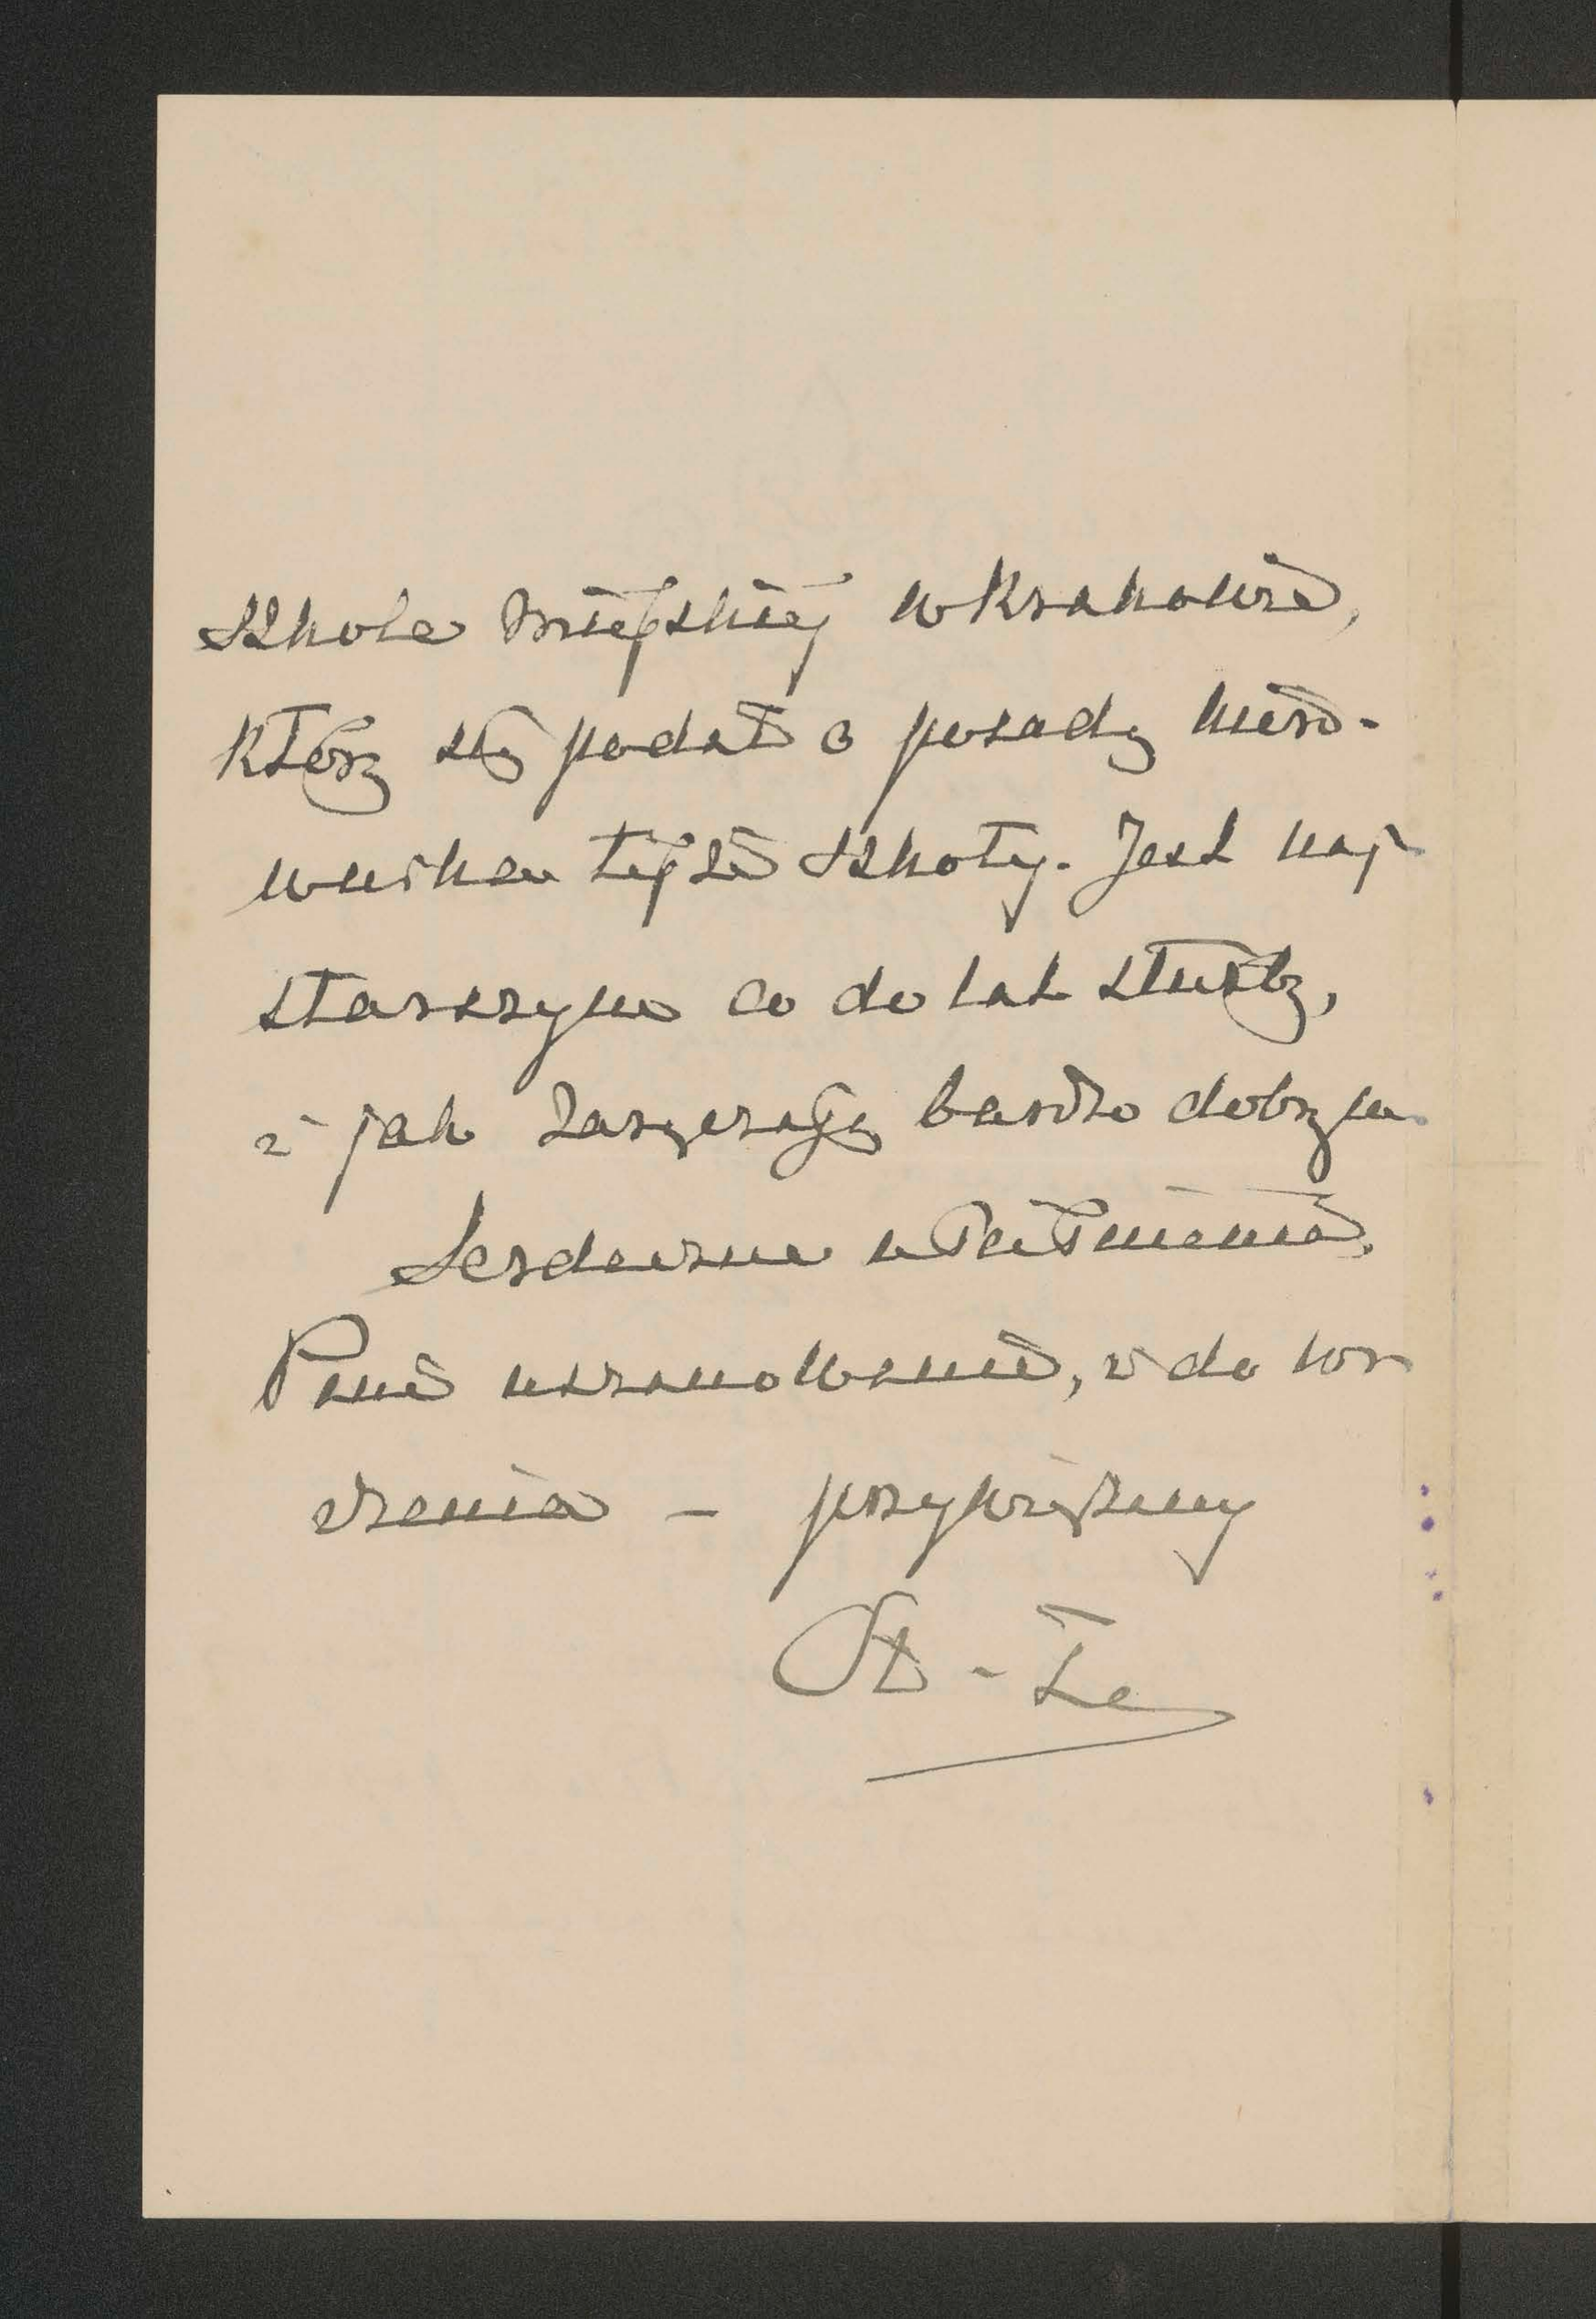 szkole miejskiej w Krakowie,
który się podał o posadę kiero-
wnika tejże szkoły. Jest naj
starszym co do lat służby,
i jak zaręczają bardzo dobrym.
Serdeczne
Panie uszanowanie, i do wi
dzenia – przywiązany
St-Że